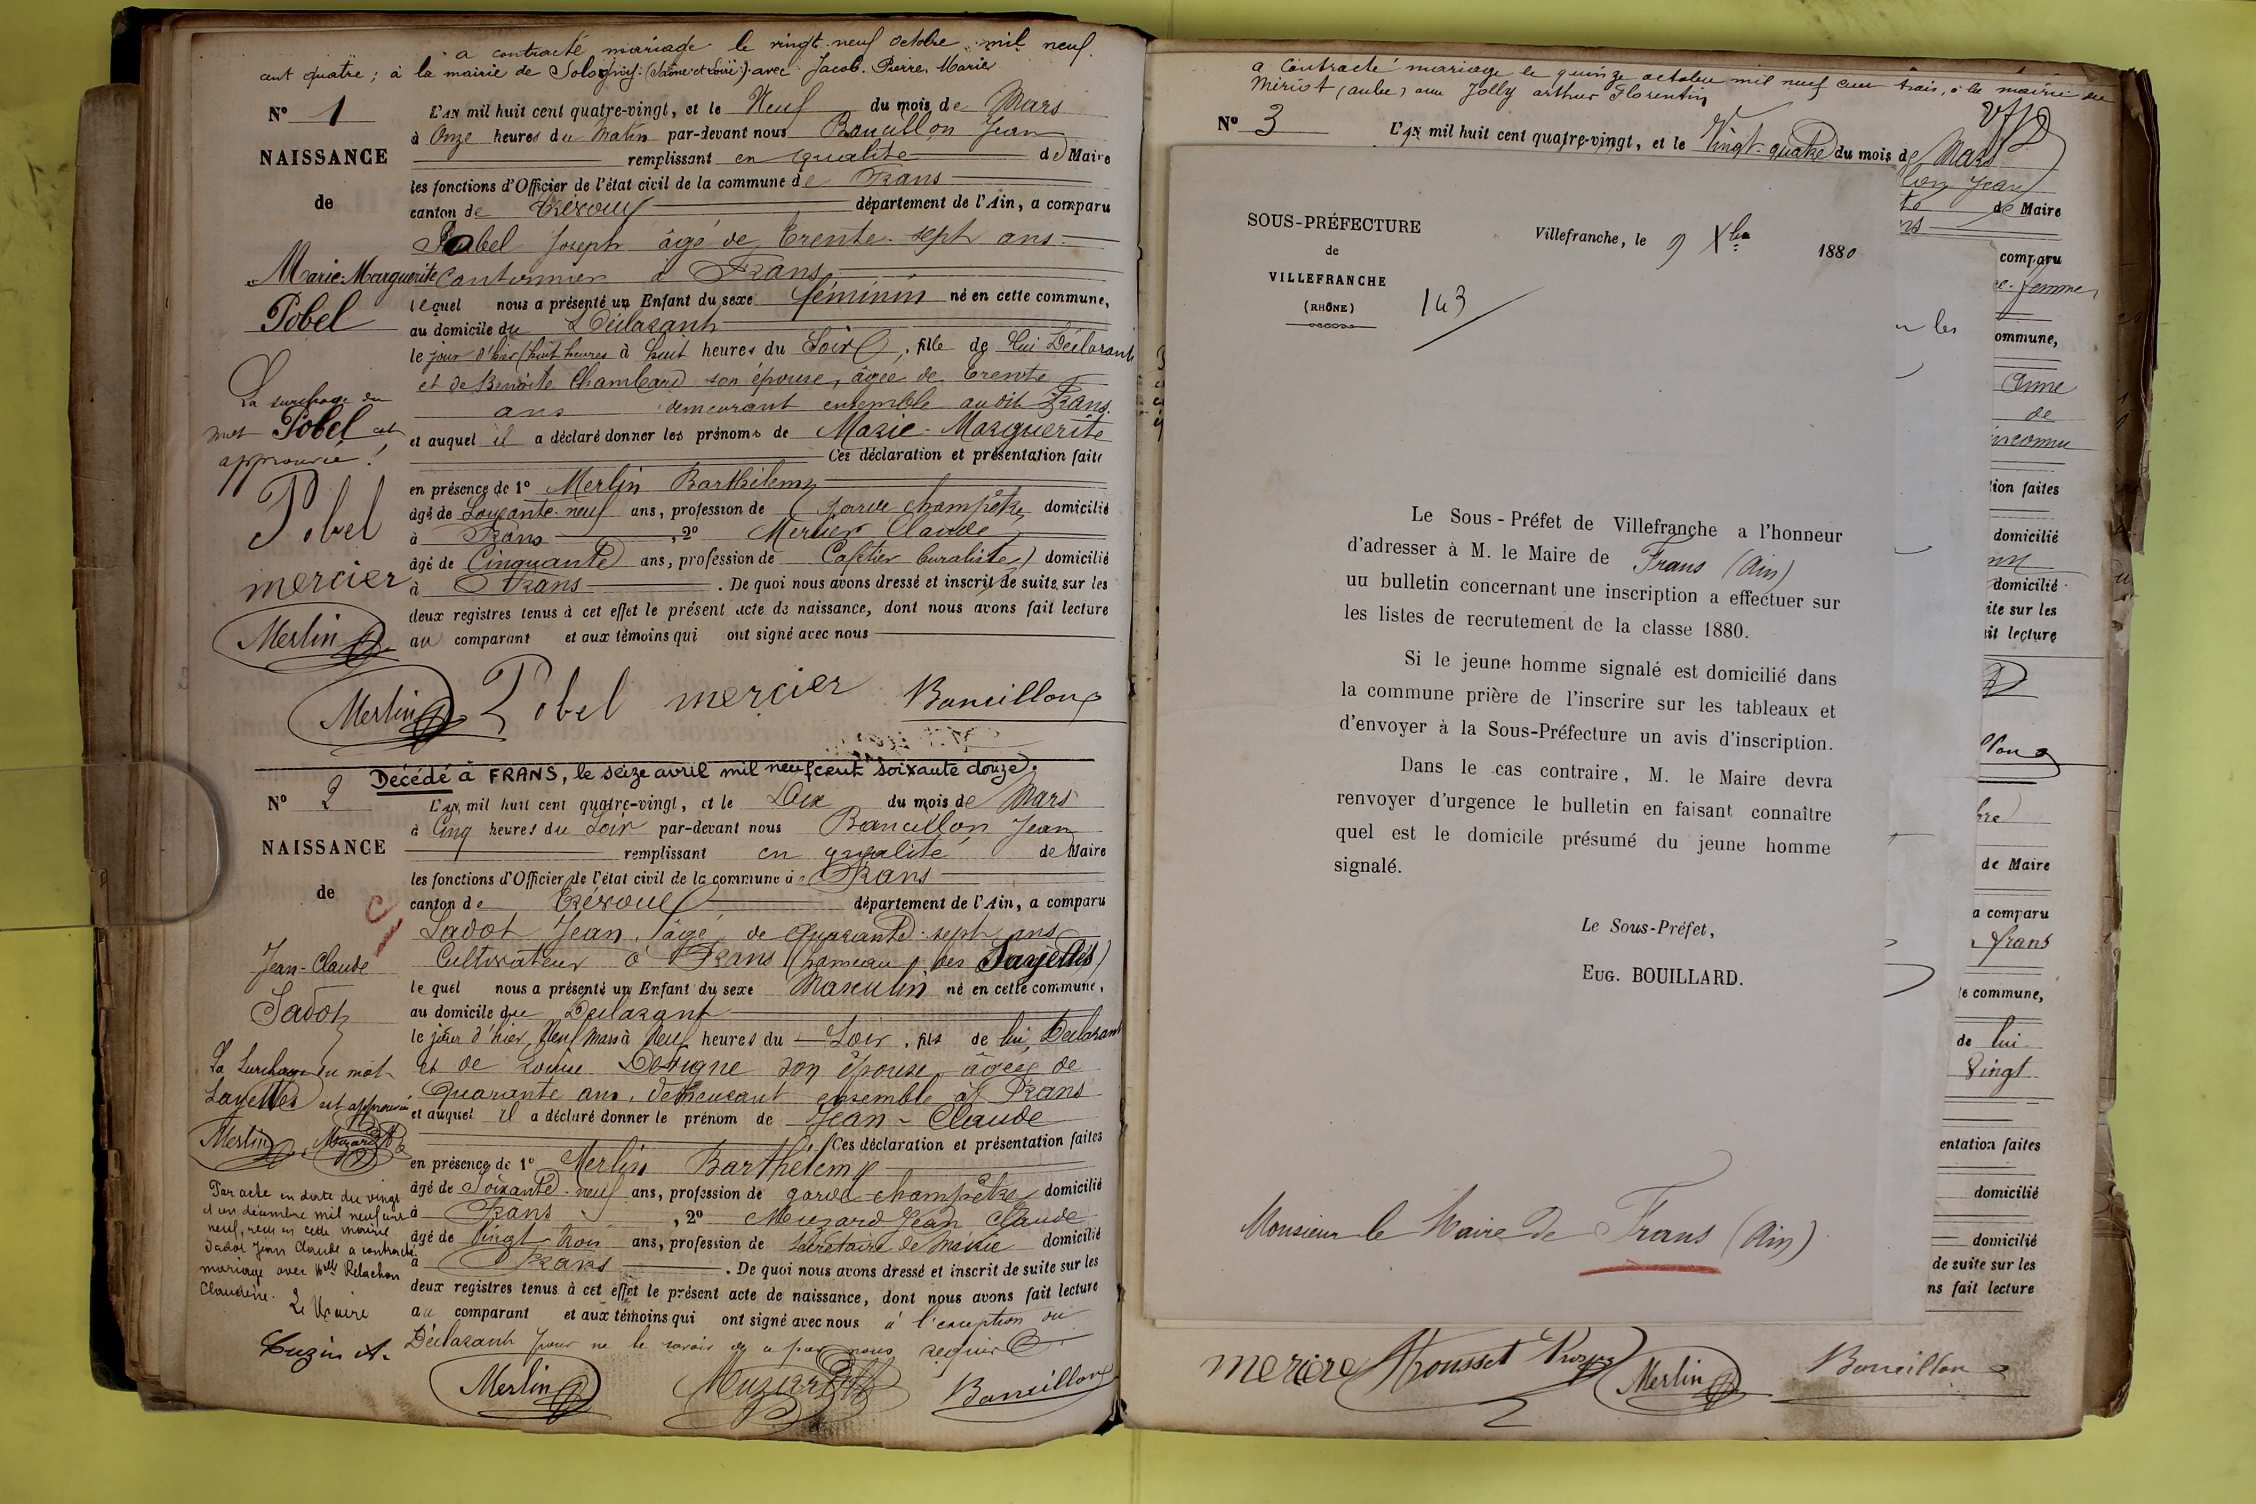 a contracté mariage le vingt-neuf octobre mil neuf
cent quatre ; à la mairie de (Saône et Loire) avec Jacob Pierre Marie
N° 1
NAISSANCE
de
Marie-Marguerite
Pobel
La surcharge du
mot Pobel est
approuvée !
Pobel
mercier
Merlin
L'AN mil huit cent quatre-vingt, et le Neuf du mois de Mars
à Onze heures du Matin par-devant nous Bancillon Jean
remplissant en qualité de Maire
les fonctions d'Officier de l'état civil de la commune de Frans
canton de Trévoux département de l'Ain, a comparu
Pobel Joseph âgé de trente-sept ans
Cantonnier à Frans
lequel nous a présenté un Enfant du sexe féminin né en cette commune,
au domicile du Déclarant
le jour d'hier (huit heures à huit heures du Soir, fille de lui Déclarant
et de Benoite Chambard son épouse, âgée de trente
ans demeurant ensemble audit Frans.
et auquel il a déclaré donner les prénoms de Marie-Marguerite
Ces déclaration et présentation faites
en présence de 1° Merlin Barthélemy
âgé de Soixante-neuf ans, profession de garde champêtre domicilié
à Frans, 2° Mercier Claude
âgé de Cinquante ans, profession de Cafetier buraliste domicilié
à Frans. De quoi nous avons dressé et inscrit de suite sur les
deux registres tenus à cet effet le présent acte de naissance, dont nous avons fait lecture
au comparant et aux témoins qui ont signé avec nous
Merlin Pobel mercier Bancillon
Décédé à FRANS, le seize avril mil neuf cent soixante douze.
N° 2
NAISSANCE
de
Jean-Claude
Sadot
La surcharge du mot
est approuvée
Merlin Muzard
Par acte en date du vingt
et un décembre mil neuf cent
neuf, reçu en cette mairie
Sadot Jean Claude a contracté
mariage avec Mlle Relachon
Claudine.
Le Maire
L'AN mil huit cent quatre-vingt, et le Dix du mois de Mars
à Cinq heures du Soir par-devant nous Bancillon Jean
remplissant en qualité de Maire
les fonctions d'Officier de l'état civil de la commune de Frans
canton de Trévoux département de l'Ain, a comparu
Sadot Jean, âgé de quarante-sept ans
Cultivateur à Frans (hameau des
lequel nous a présenté un Enfant du sexe Masculin né en cette commune,
au domicile du Déclarant
le jour d'hier, Neuf Mars à Neuf heures du Soir, fils de lui Déclarant
et de Louise son épouse âgée de
quarante ans, demeurant ensemble à Frans
et auquel il a déclaré donner le prénom de Jean-Claude
Ces déclaration et présentation faites
en présence de 1° Merlin Barthélemy
âgé de Soixante-neuf ans, profession de garde-champêtre domicilié
à Frans, 2° Muzard Jean Claude
âgé de Vingt trois ans, profession de Secrétaire de Mairie domicilié
à Frans. De quoi nous avons dressé et inscrit de suite sur les
deux registres tenus à cet effet le présent acte de naissance, dont nous avons fait lecture
au comparant et aux témoins qui ont signé avec nous à l'exception du
Déclarant pour ne le savoir de ce par nous requis
Merlin Muzard Bancillon
a contracté mariage le quinze octobre mil neuf cent trois, à la mairie de
Mériot (aube) avec Jolly arthur Florentin
N° 3
L'AN mil huit cent quatre-vingt, et le Vingt-quatre du mois de Mars
SOUS-PRÉFECTURE
de
VILLEFRANCHE
(RHÔNE)
Villefranche, le 9 Xbre 1880
143
Le Sous-Préfet de Villefranche a l'honneur
d'adresser à M. le Maire de Frans (Ain)
un bulletin concernant une inscription a effectuer sur
les listes de recrutement de la classe 1880.
Si le jeune homme signalé est domicilié dans
la commune prière de l'inscrire sur les tableaux et
d'envoyer à la Sous-Préfecture un avis d'inscription.
Dans le cas contraire, M. le Maire devra
renvoyer d'urgence le bulletin en faisant connaître
quel est le domicile présumé du jeune homme
signalé.
Le Sous-Préfet,
EUG. BOUILLARD.
Monsieur le Maire de Frans (Ain)
Jean
de Maire
comparu
femme
les
ommune,
de
inconnu
tion faites
domicilié
domicilié
ite sur les
ait lecture
de Maire
a comparu
frans
te commune,
de lui
Vingt
entation faites
domicilié
domicilié
de suite sur les
ns fait lecture
Merlin Bancillon